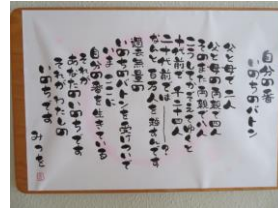 自分の番
いのちのバトン
父と母で二人
父と母の両親で四人
そのまた両親で八人
こうしてかぞえてゆくと
十代前で千二十四人
二十代前では──?
なんと百万人を越すんです
過去無量の
いのちのバトンを受けついで
いまここに
自分の番を生きている
それが
あなたのいのちです
それがわたしの
いのちです
みつを